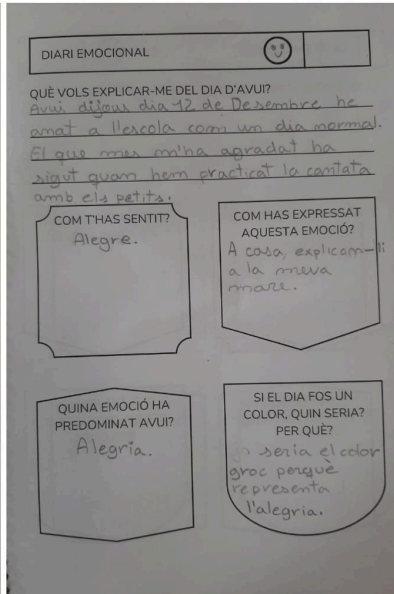 DIARI EMOCIONAL
QUÈ VOLS EXPLICAR-ME DEL DIA D'AVUI?
Avui dijous dia 12 de Desembre he
anat a l'escola com un dia normal.
El que mes m'ha agradat ha
sigut quan hem practicat la cantata
amb els petits.
COM T'HAS SENTIT?
Alegre.
COM HAS EXPRESSAT
AQUESTA EMOCIÓ?
A casa, explicam-li
a la meva
mare.
QUINA EMOCIÓ HA
PREDOMINAT AVUI?
Alegria.
SI EL DIA FOS UN
COLOR, QUIN SERIA?
PER QUÈ?
seria el color
groc perquè
representa
l'alegria.